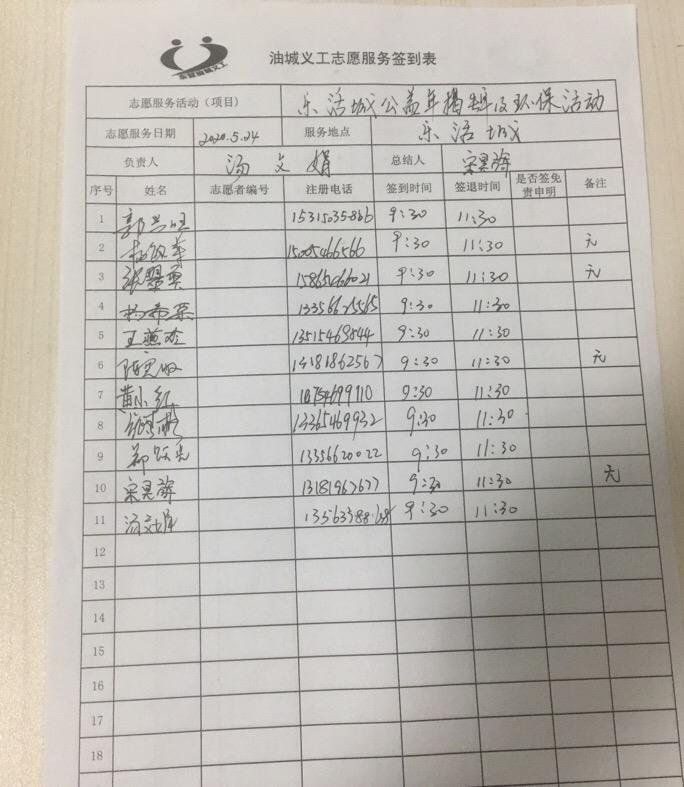 东营油城义工
油城义工志愿服务签到表
志愿服务活动（项目） 乐活城公益年揭牌及环保活动
志愿服务日期 2020.5.24 服务地点 乐活城
负责人 汤文娟 总结人 宋昊
序号 姓名 志愿者编号 注册电话 签到时间 签退时间 是否签免责申明 备注
1 郭 15315035866 9:30 11:30
2 15005466566 9:30 11:30 无
3 张 15865466021 9:30 11:30 无
4 杨希 9:30 11:30
5 王燕 13515469544 9:30 11:30
6 陈 13181862567 9:30 11:30 无
7 黄小红 18754699110 9:30 11:30
8 13365469932 9:30 11:30
9 郑跃 13356620022 9:30 11:30
10 宋昊 13181967677 9:30 11:30 无
11 汤文娟 9:30 11:30
12
13
14
15
16
17
18